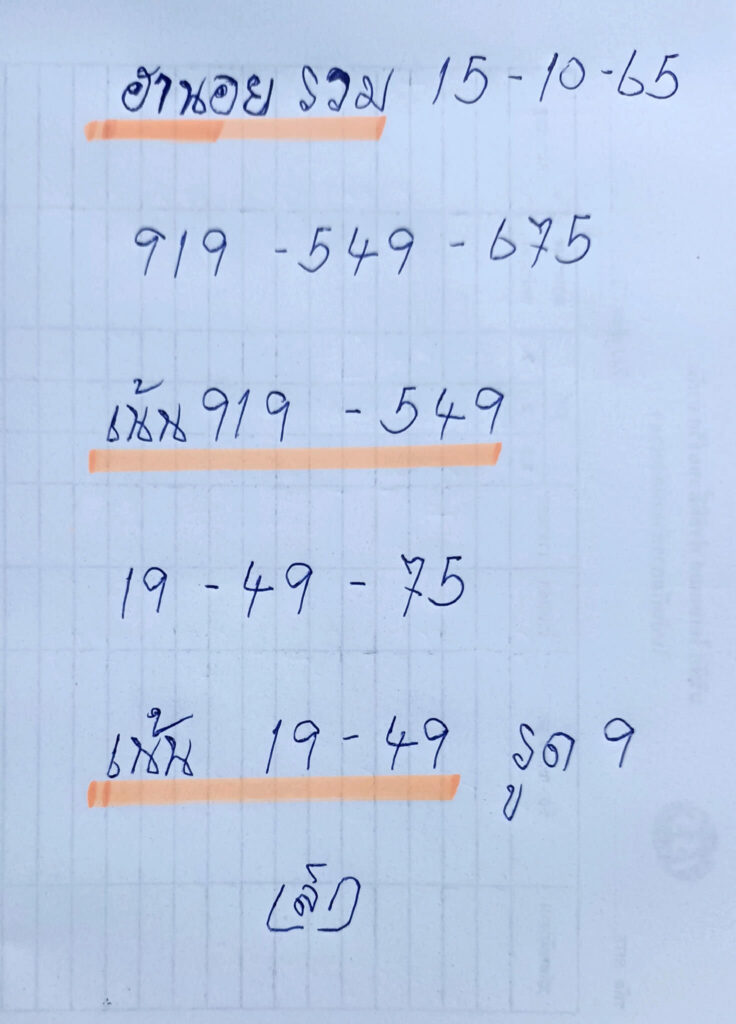 ฮานอย รวม 15-10-65
919 - 549 - 675
เน้น 919 - 549
19 - 49 - 75
เน้น 19 - 49 รูด 9